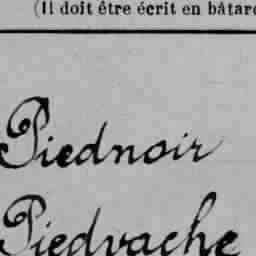 (Il doit être écrit en bâtard
Piednoir
Piedvache